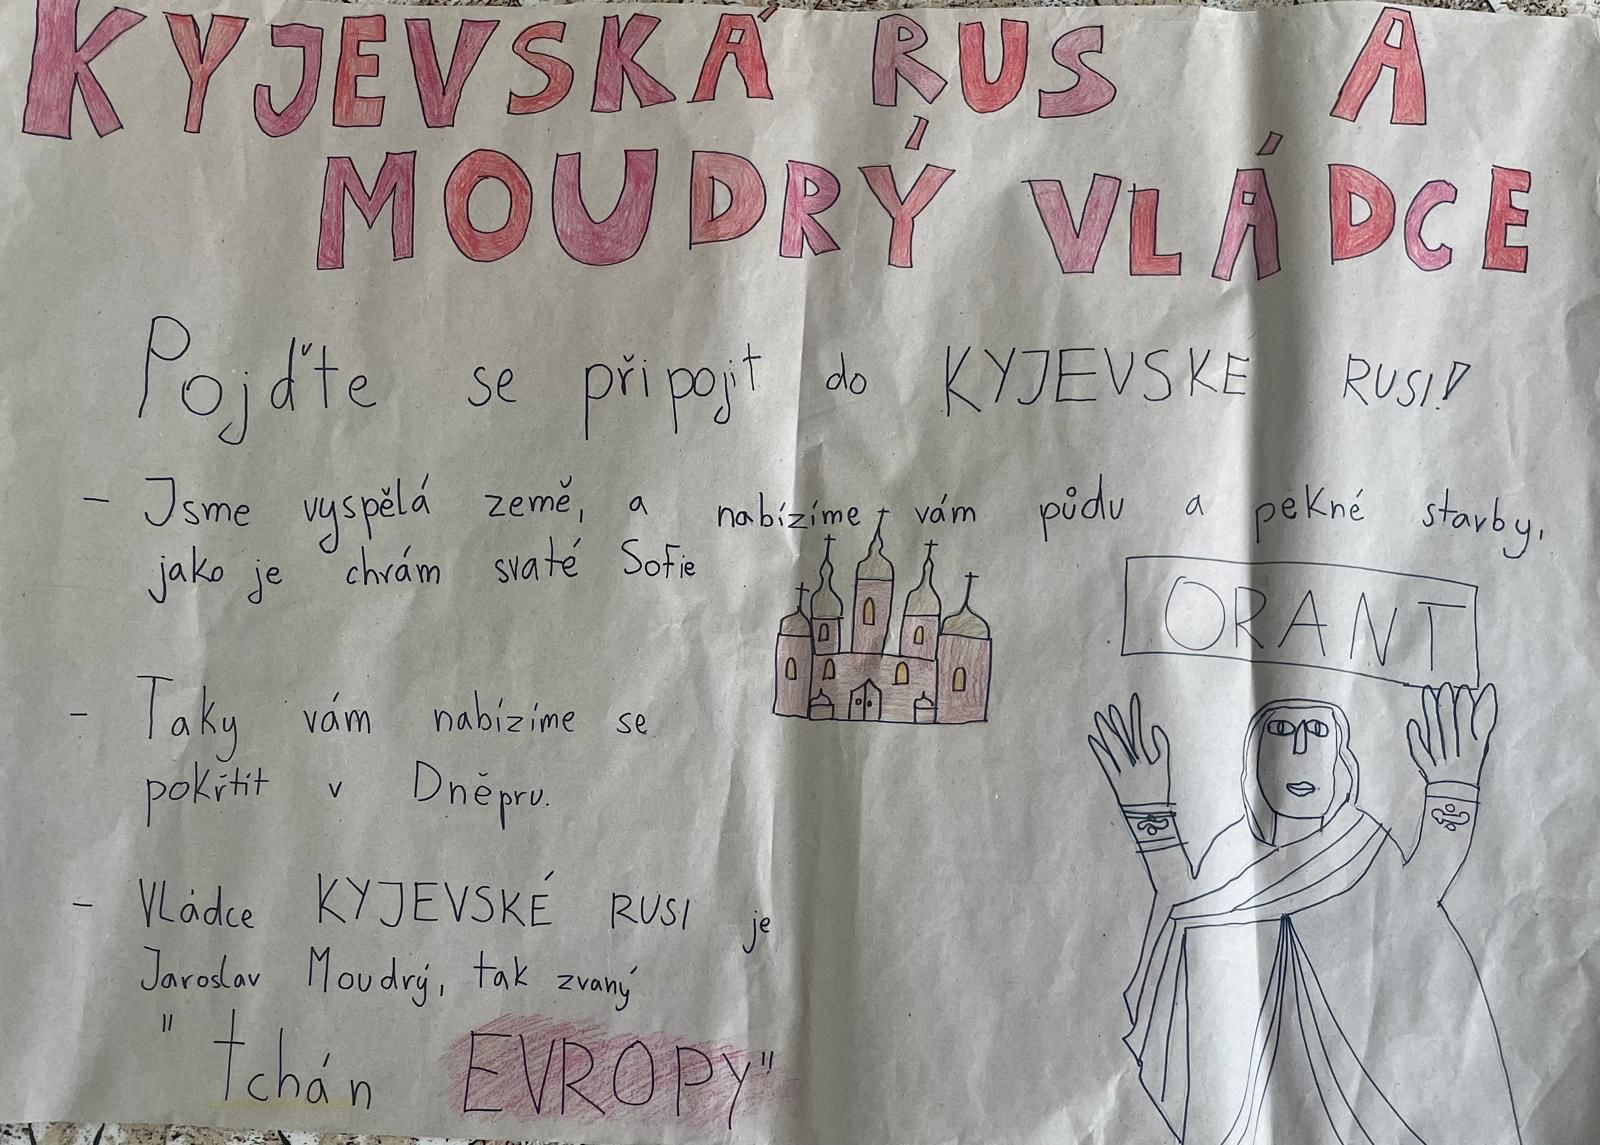 KYJEVSKÁ RUS A
MOUDRÝ VLÁDCE
Pojďte se připojit do KYJEVSKE RUSI!
- Jsme vyspělá země, a nabízíme vám půdu a pekné starby,
jako je chrám svaté Sofie
ORANT
- Taky vám nabízíme se
pokřtit v Dněpru.
- Vládce KYJEVSKÉ RUSI je
Jaroslav Moudrý, tak zvaný
" tchán EVROPY"